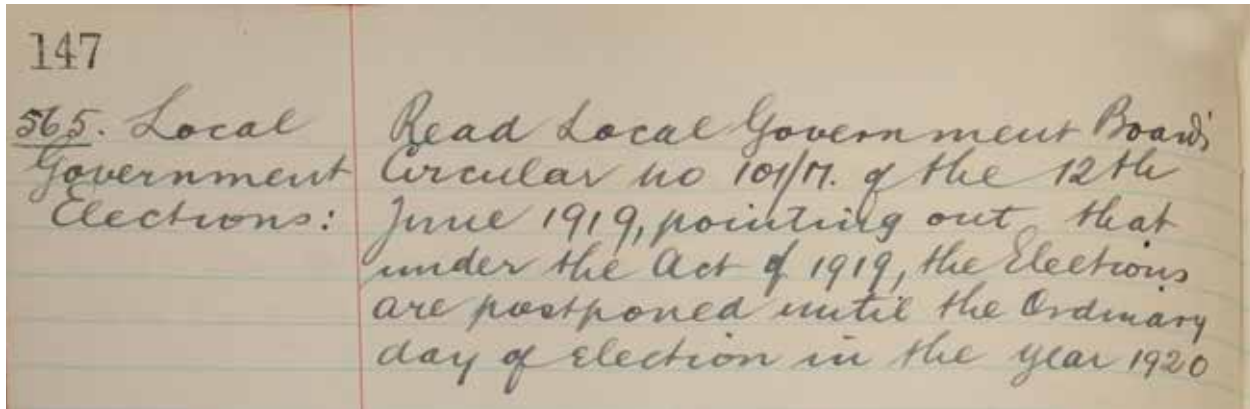 147
565. Local
Government
Elections:
Read Local Government Board's
Circular no 101/M. of the 12th
June 1919, pointing out that
under the Act of 1919, the Elections
are postponed until the Ordinary
day of election in the year 1920